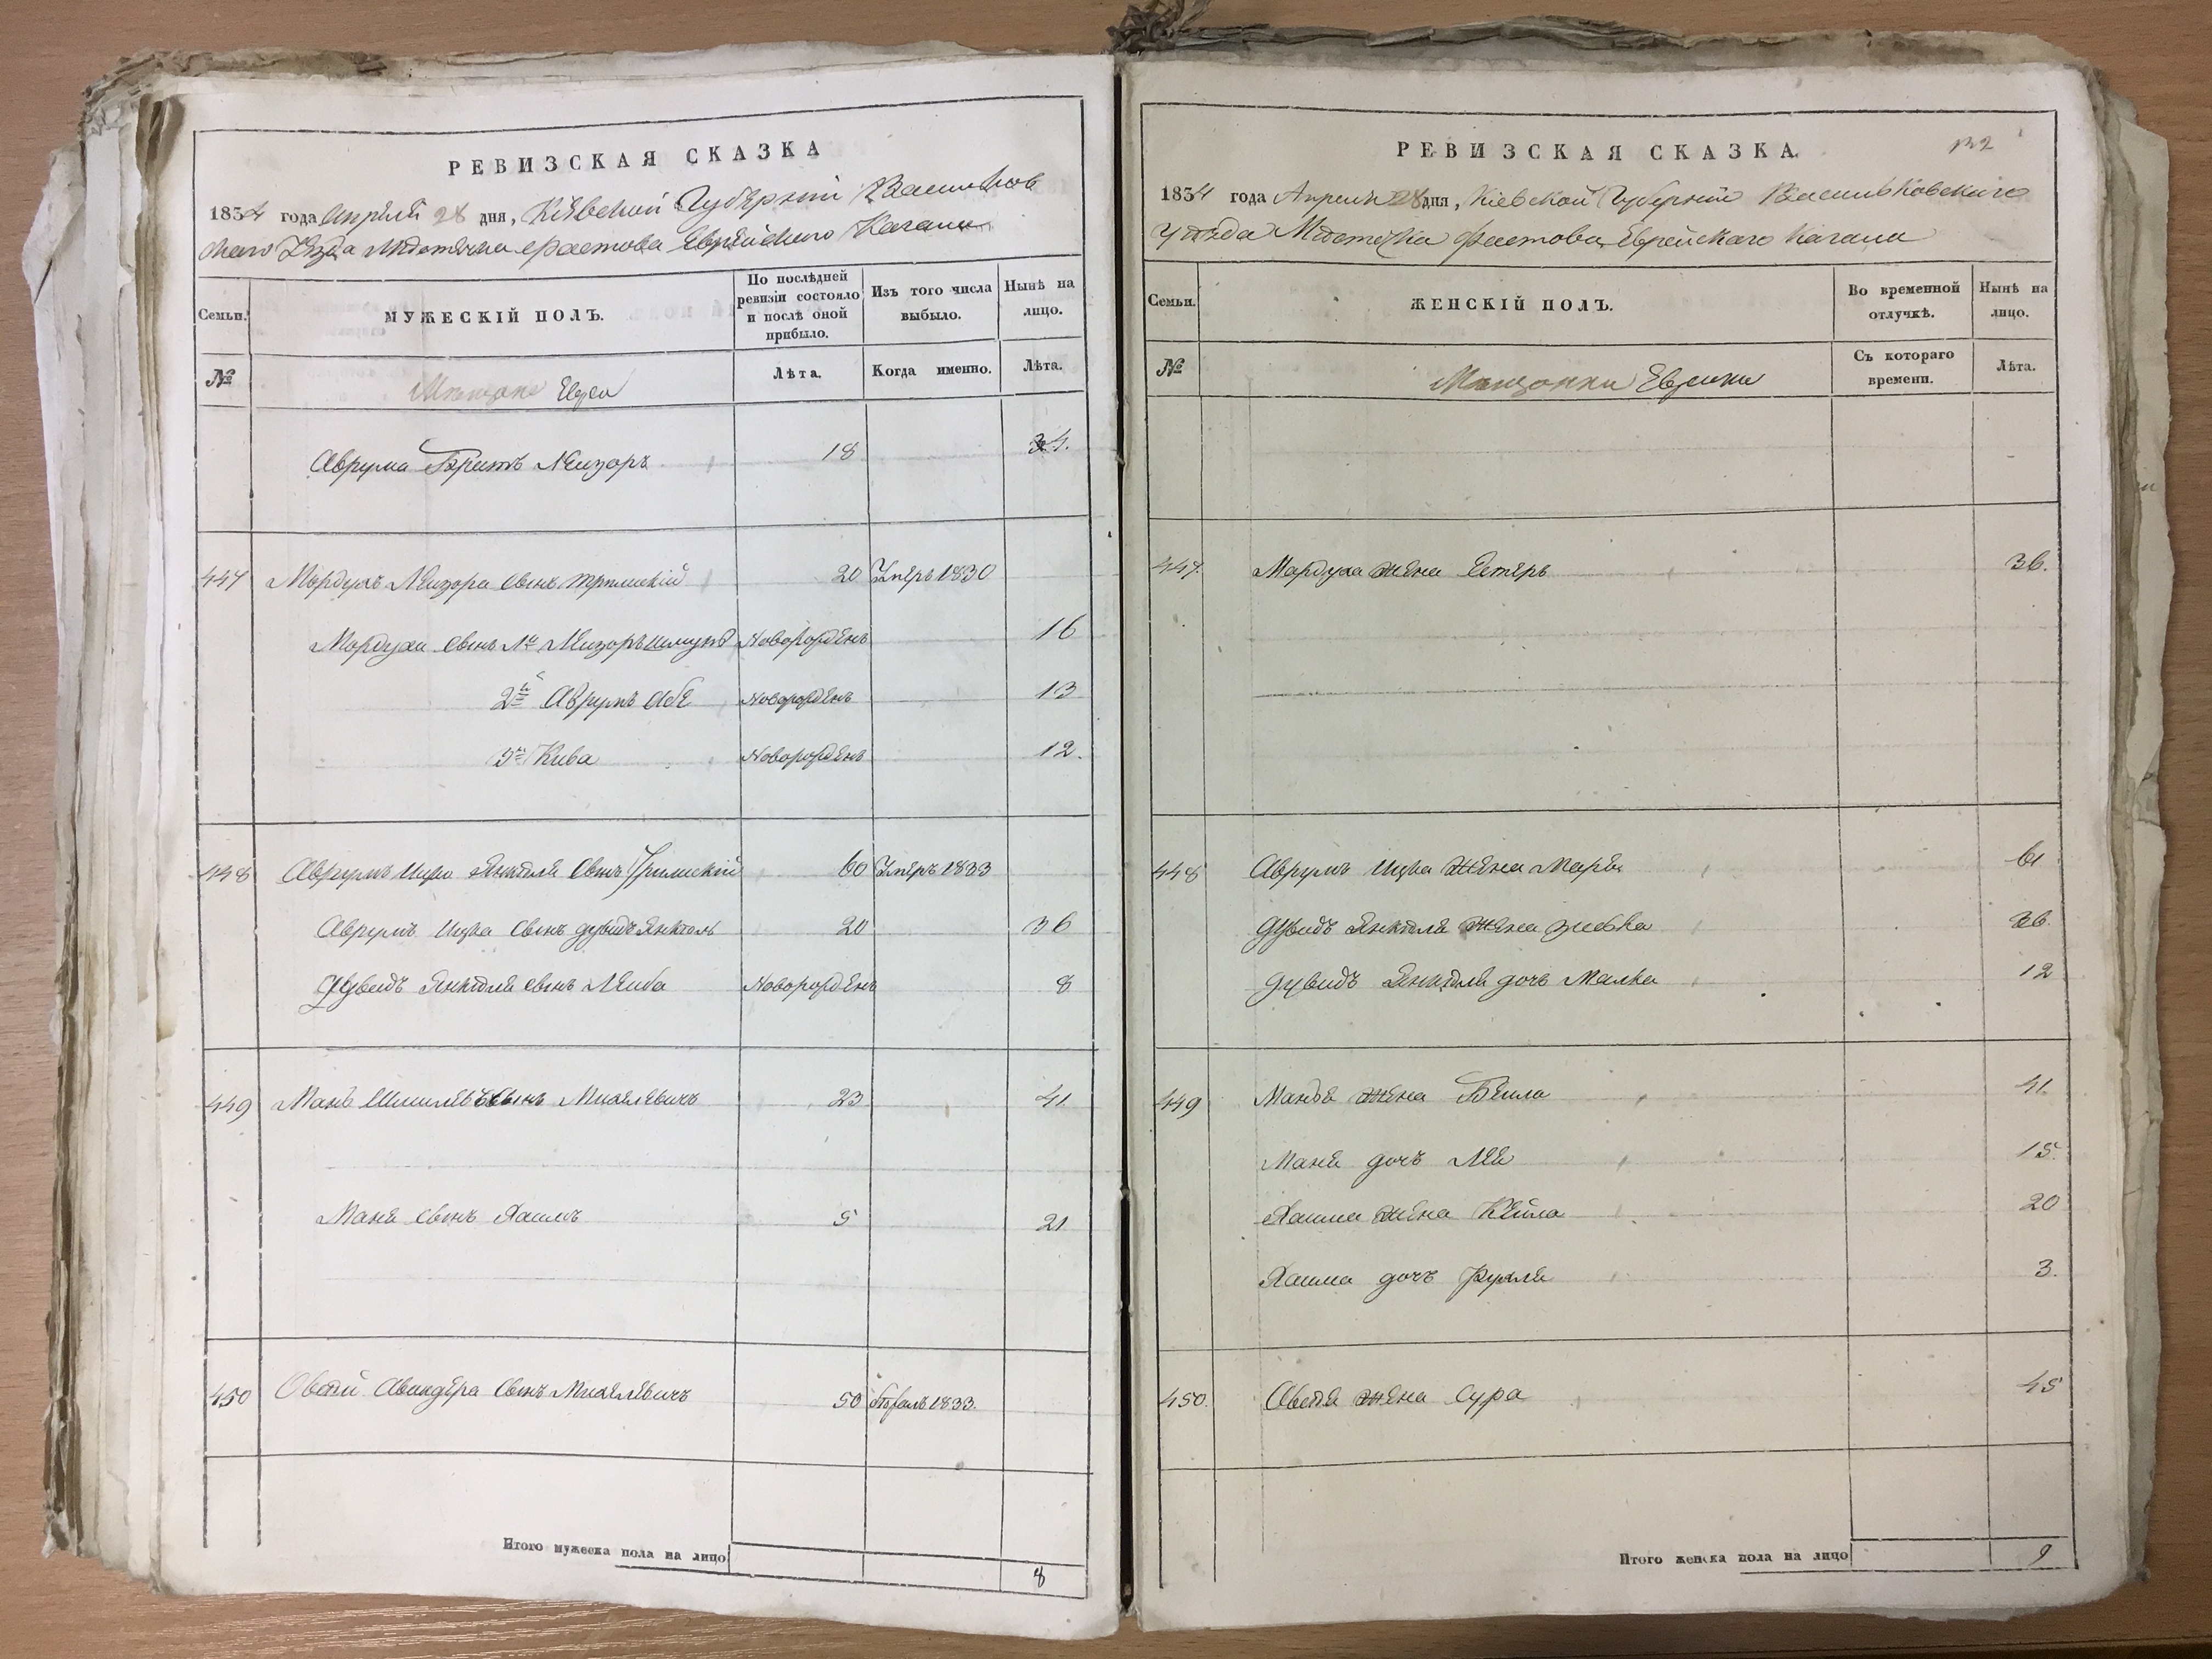 РЕВИЗСКАЯ СКАЗКА
1834 года Апреля 28 дня, Кіевской Губерніи Васильков
скаго Уезда Местечка Фастова Еврейского Кагала
Семьи.
МУЖЕСКІЙ ПОЛЪ.
По послѣдней ревизіи состояло и послѣ оной прибыло.
Изъ того числа выбыло.
Нынѣ на лицо.
№
Мещане Евреи
Лѣта.
Когда именно.
Лѣта.
Аврума братъ Лейзоръ 18 34.
447 Мордухъ Лейзора сынъ 20 Умеръ 1830
Мордуха сынъ 1й Лейзоръ Новорожденъ 16
2й Аврумъ Абе Новорожденъ 13
3й Кива Новорожденъ 12.
448 Аврумъ Ицко Янкеля сынъ 60 Умеръ 1833
Аврумъ Ицка сынъ Дувидъ Янкель 20 36
Дувидъ Янкеля сынъ Лейба Новорожденъ 8
449 Мань сынъ Михелевичъ 23 41
Маня сынъ Хаимъ 5 21
450 Овсей сынъ Михелевичъ 50 1833.
Итого мужеска пола на лицо 8
РЕВИЗСКАЯ СКАЗКА.
132
1834 года Апреля 28 дня, Кіевской Губерніи Васильковскаго
Уѣзда Мѣстечка Фастова Еврейскаго Кагала
Семьи.
ЖЕНСКІЙ ПОЛЪ.
Во временной отлучкѣ.
Нынѣ на лицо.
№
Мещанки Еврейки
Съ котораго времени.
Лѣта.
447. Мордуха жена Естеръ 36.
448 Аврумъ Ицка жена 61
Дувидъ Янкеля жена Зиська 36.
Дувидъ Янкеля дочь Малка 12
449 жена Бейла 41.
Маня дочь Лея 15.
Хаима жена Кейла 20
Хаима дочь Рухля 3.
450. Овсея жена Сура 45
Итого женска пола на лицо 9